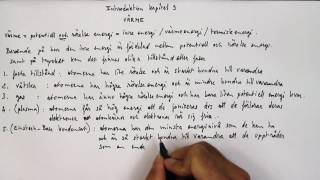 Introduktion kapitel 3
VÄRME
värme = potentiell och rörelse energi = inre energi / värmeenergi / termisk energi.
Beroende på hur den inre energin är fördelad mellan potentiell och rörelse energi
samt på trycket kan det finnas olika tillstånd eller faser
1. fasta tillstånd : atomerna har lite rörelse energi och är starkt bundna till varandra
2. vätska : atomerna har mer rörelse energi och är mindre bundna till varandra
3. gas : atomerna har ännu högre rörelse energi och har bara liten potentiell energi
4. (plasma) : atomerna får så hög energi att de joniseras dvs att de förlorar deras
elektroner och atomkärna och elektroner rör sig fria.
5. (Einstein-Bose kondensat) : atomerna har den minsta energinivå som de kan ha
och är så starkt bundna till varandra att de uppträder
som en enda